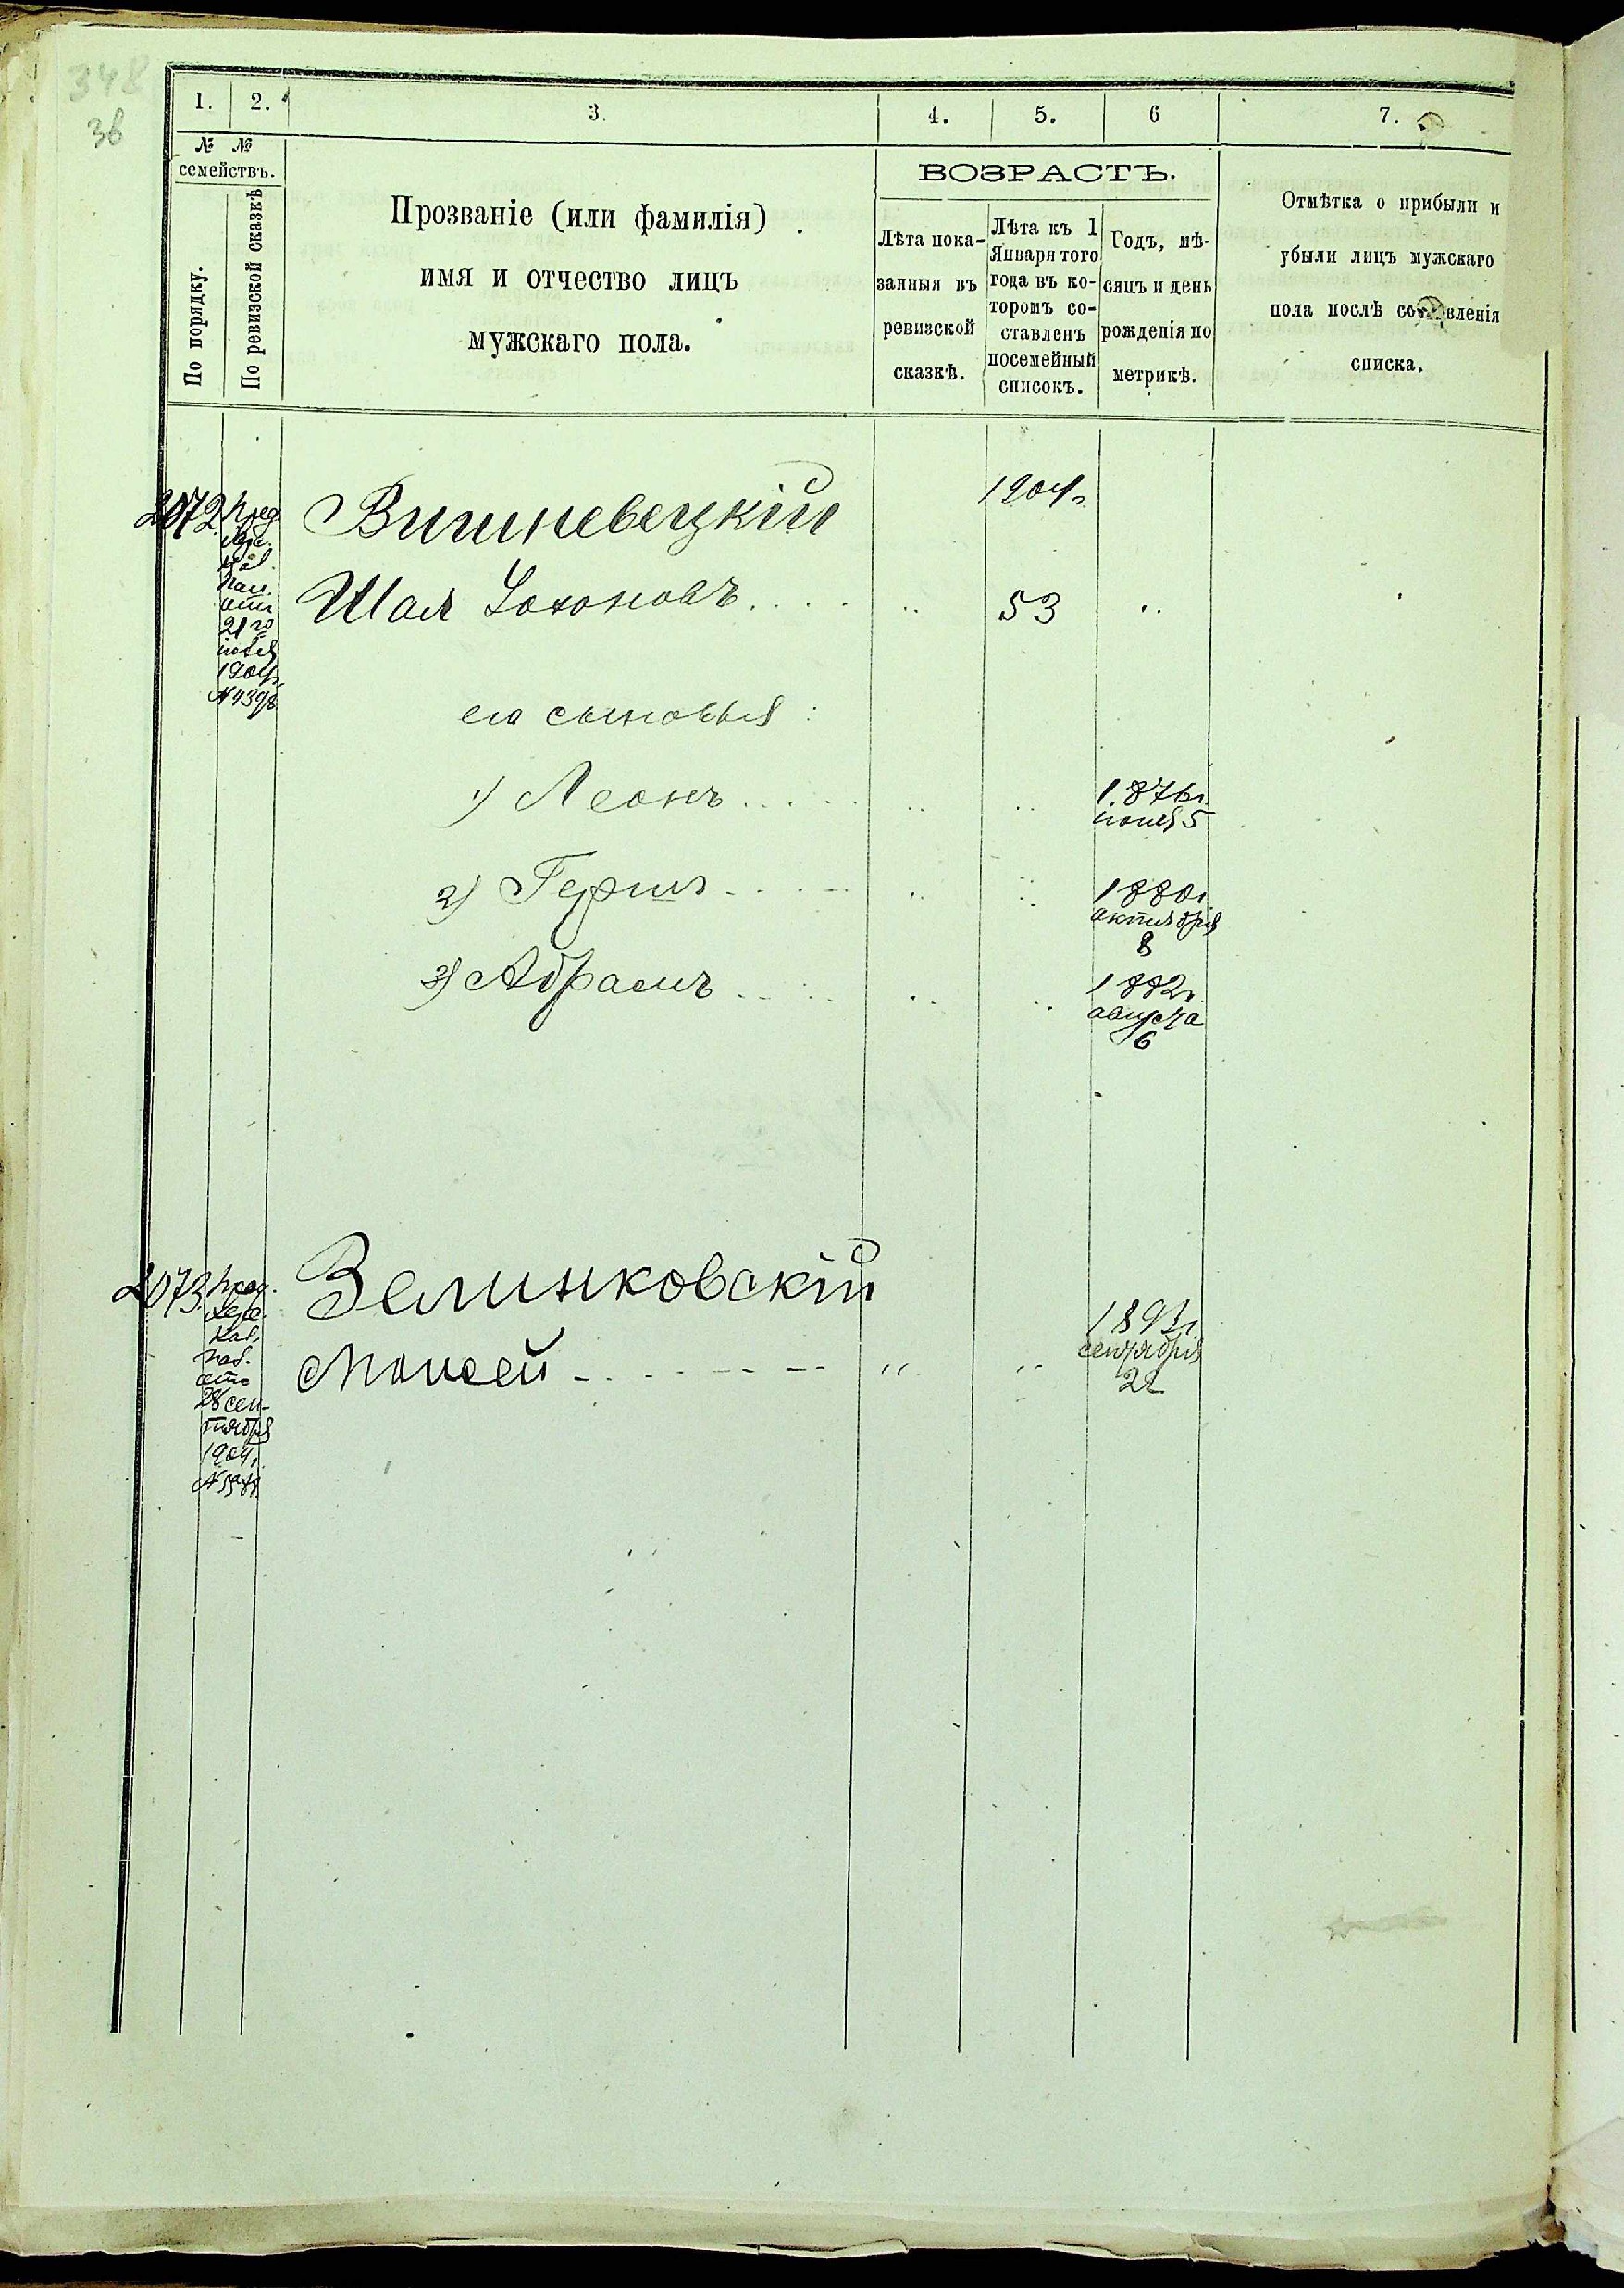 348
36
1. 2. 3. 4. 5. 6 7.
№ №
семействъ.
По порядку.
По ревизской сказкѣ
Прозваніе (или фамилія)
имя и отчество лицъ
мужскаго пола.
ВОЗРАСТЪ.
Лѣта пока-
занныя въ
ревизской
сказкѣ.
Лѣта къ 1
Января того
года въ ко-
торомъ со-
ставленъ
посемейный
списокъ.
Годъ, мѣ-
сяцъ и день
рожденія по
метрикѣ.
Отмѣтка о прибыли и
убыли лицъ мужскаго
пола послѣ составленія
списка.
2072 Пред.
Хер.
Каз.
Пал.
отъ
21го
1904г.
№ 4398
Вишневецкій 1904г.
Шая 53
его сыновья:
1) Леонъ 1876г.
5
2) Гершъ 1880г.
октября
8
3) Абрамъ 1882г.
августа
6
2073 Пред.
Хер.
Каз.
Пал.
отъ
28 сен-
тября
1904г.
Зелинковскій
Моисей
сентября
22